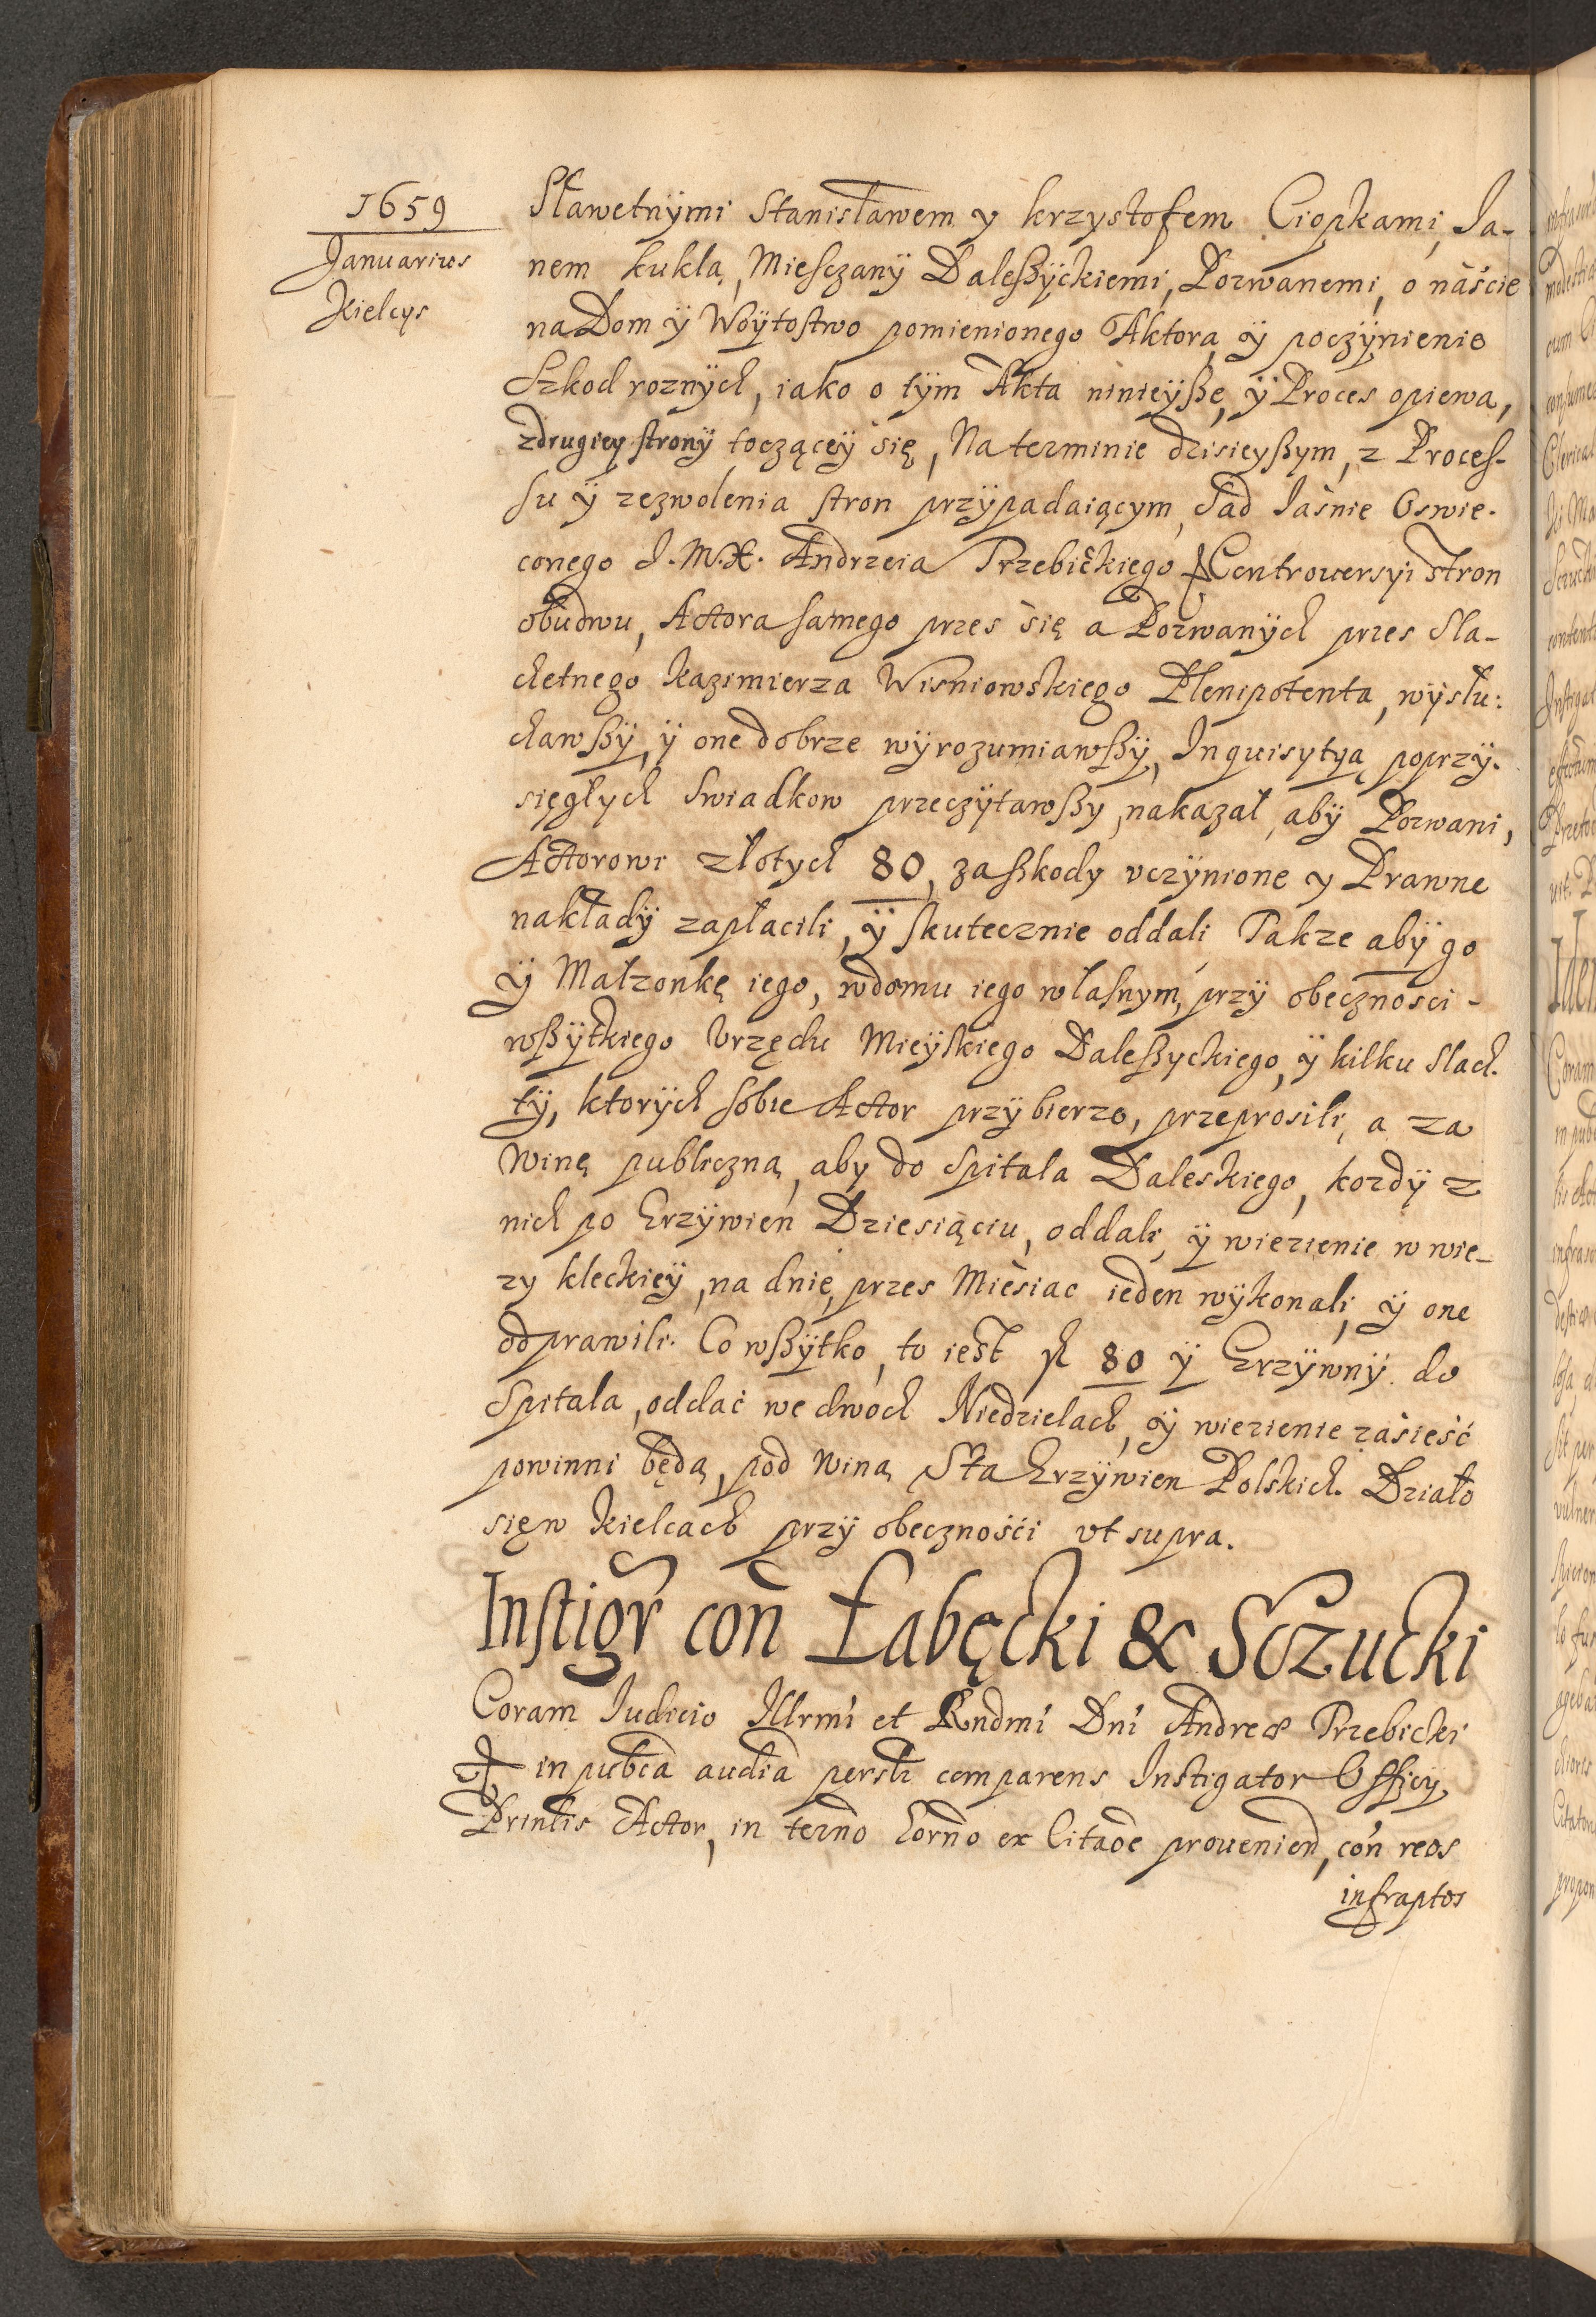 1659
Januarius
Kielcys
Sławetnÿmi Stanisławem y krzysztofem Ciopkami, Ja-
nem kuklą, Miesczanÿ Daleßÿckiemi, Pozwanemi, o naście
na Dom ÿ Woÿtostwo pomienionego Aktora, ÿ poczÿnienie
Szkod roznÿch, iako o tÿm Akta ninieÿße, ÿ Proces opiewa,
zdrugiey stronÿ toczącÿ się, Na terminie dzisieyßym, z Proces-
su ÿ zezwolenia stron przÿpadaiącym, Sąd Jaśnie Oswie-
conego J.M.X. Andrzeia Trzebickiego Controuersyi stron
obudwu, Actora samego przes się a Pozwanÿch przes Sla-
chetnego Kazimierza Wiśniowskiego Plenipotenta, wysłu:
chawßÿ, ÿ one dobrze wÿrozumiawßÿ, Inquisytyą poprzÿ-
sięgłych Swiadkow przeczÿtawßy, nakazał, abÿ Pozwani,
Actorowi złotych 80, za ßkody vczÿnione y Prawne
nakładÿ zapłacili, ÿ skutecznie oddali, Takze abÿ go
ÿ Małzonkę iego, w domu iego własnym, przÿ obecznosci -
wßÿtkiego Vrzędu Mieÿskiego Daleßyckiego, ÿ kilku Slach-
tÿ, ktorÿch sobie Actor przÿbierze, przeprosili, a za
Winę publiczną, aby do Spitala Daleskiego, kozdÿ z
nich po Grzÿwien Dziesiąciu, oddali, ÿ wiezienie w wie-
zy kleckieÿ, na dnie, przes Miesiac ieden wÿkonali, ÿ one
odprawili. Co wßÿtko, to iest fl 80 ÿ Grzÿwnÿ do
Spitala, oddać we dwoch Niedzielach, ÿ wiezienie zasieść
powinni będą, pod winą Sta Grzÿwien Polskich. Działo
się w Kielcach przÿ obecznośći vt supra.
Instigr con Łabęcki & Sczucki
Coram Iudicio Illrmi et Rndmi Dni Andreæ Trzebicki
in pubca audia persłr comparens Instigator Officÿ
Prinlis Actor, in termo horno ex Citaoe prouenien, con reos
infraptos